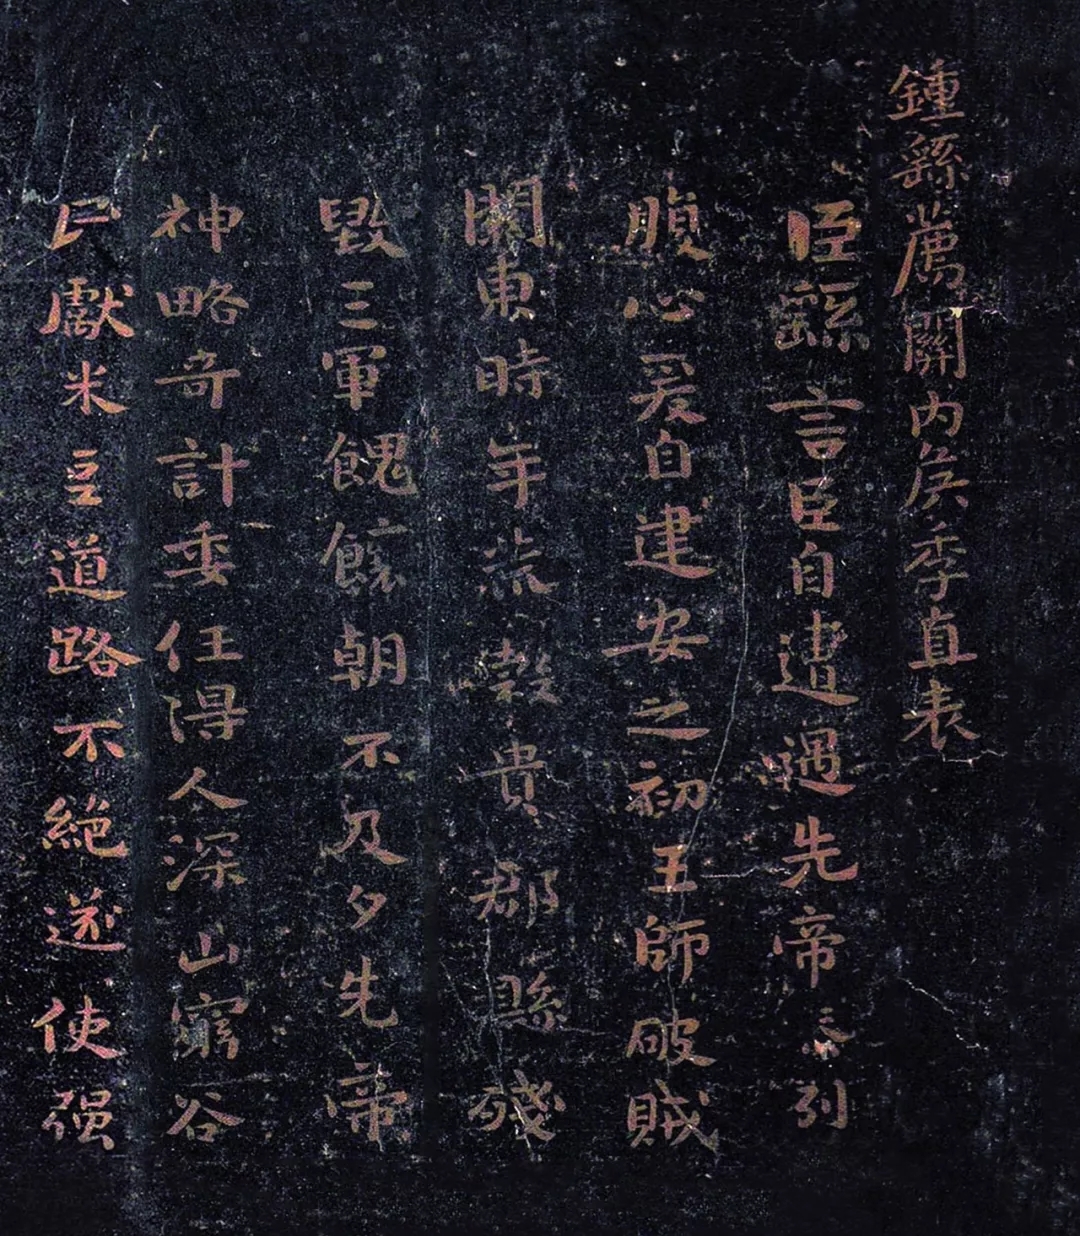 鍾繇薦關内矦季直表
臣繇言臣自遭遇先帝忝列
腹心爰自建安之初王師破賊
關東時年荒榖貴郡縣殘
毀三軍餽饟朝不及夕先帝
神略奇計委任得人深山窮谷
民獻米豆道路不絶遂使强